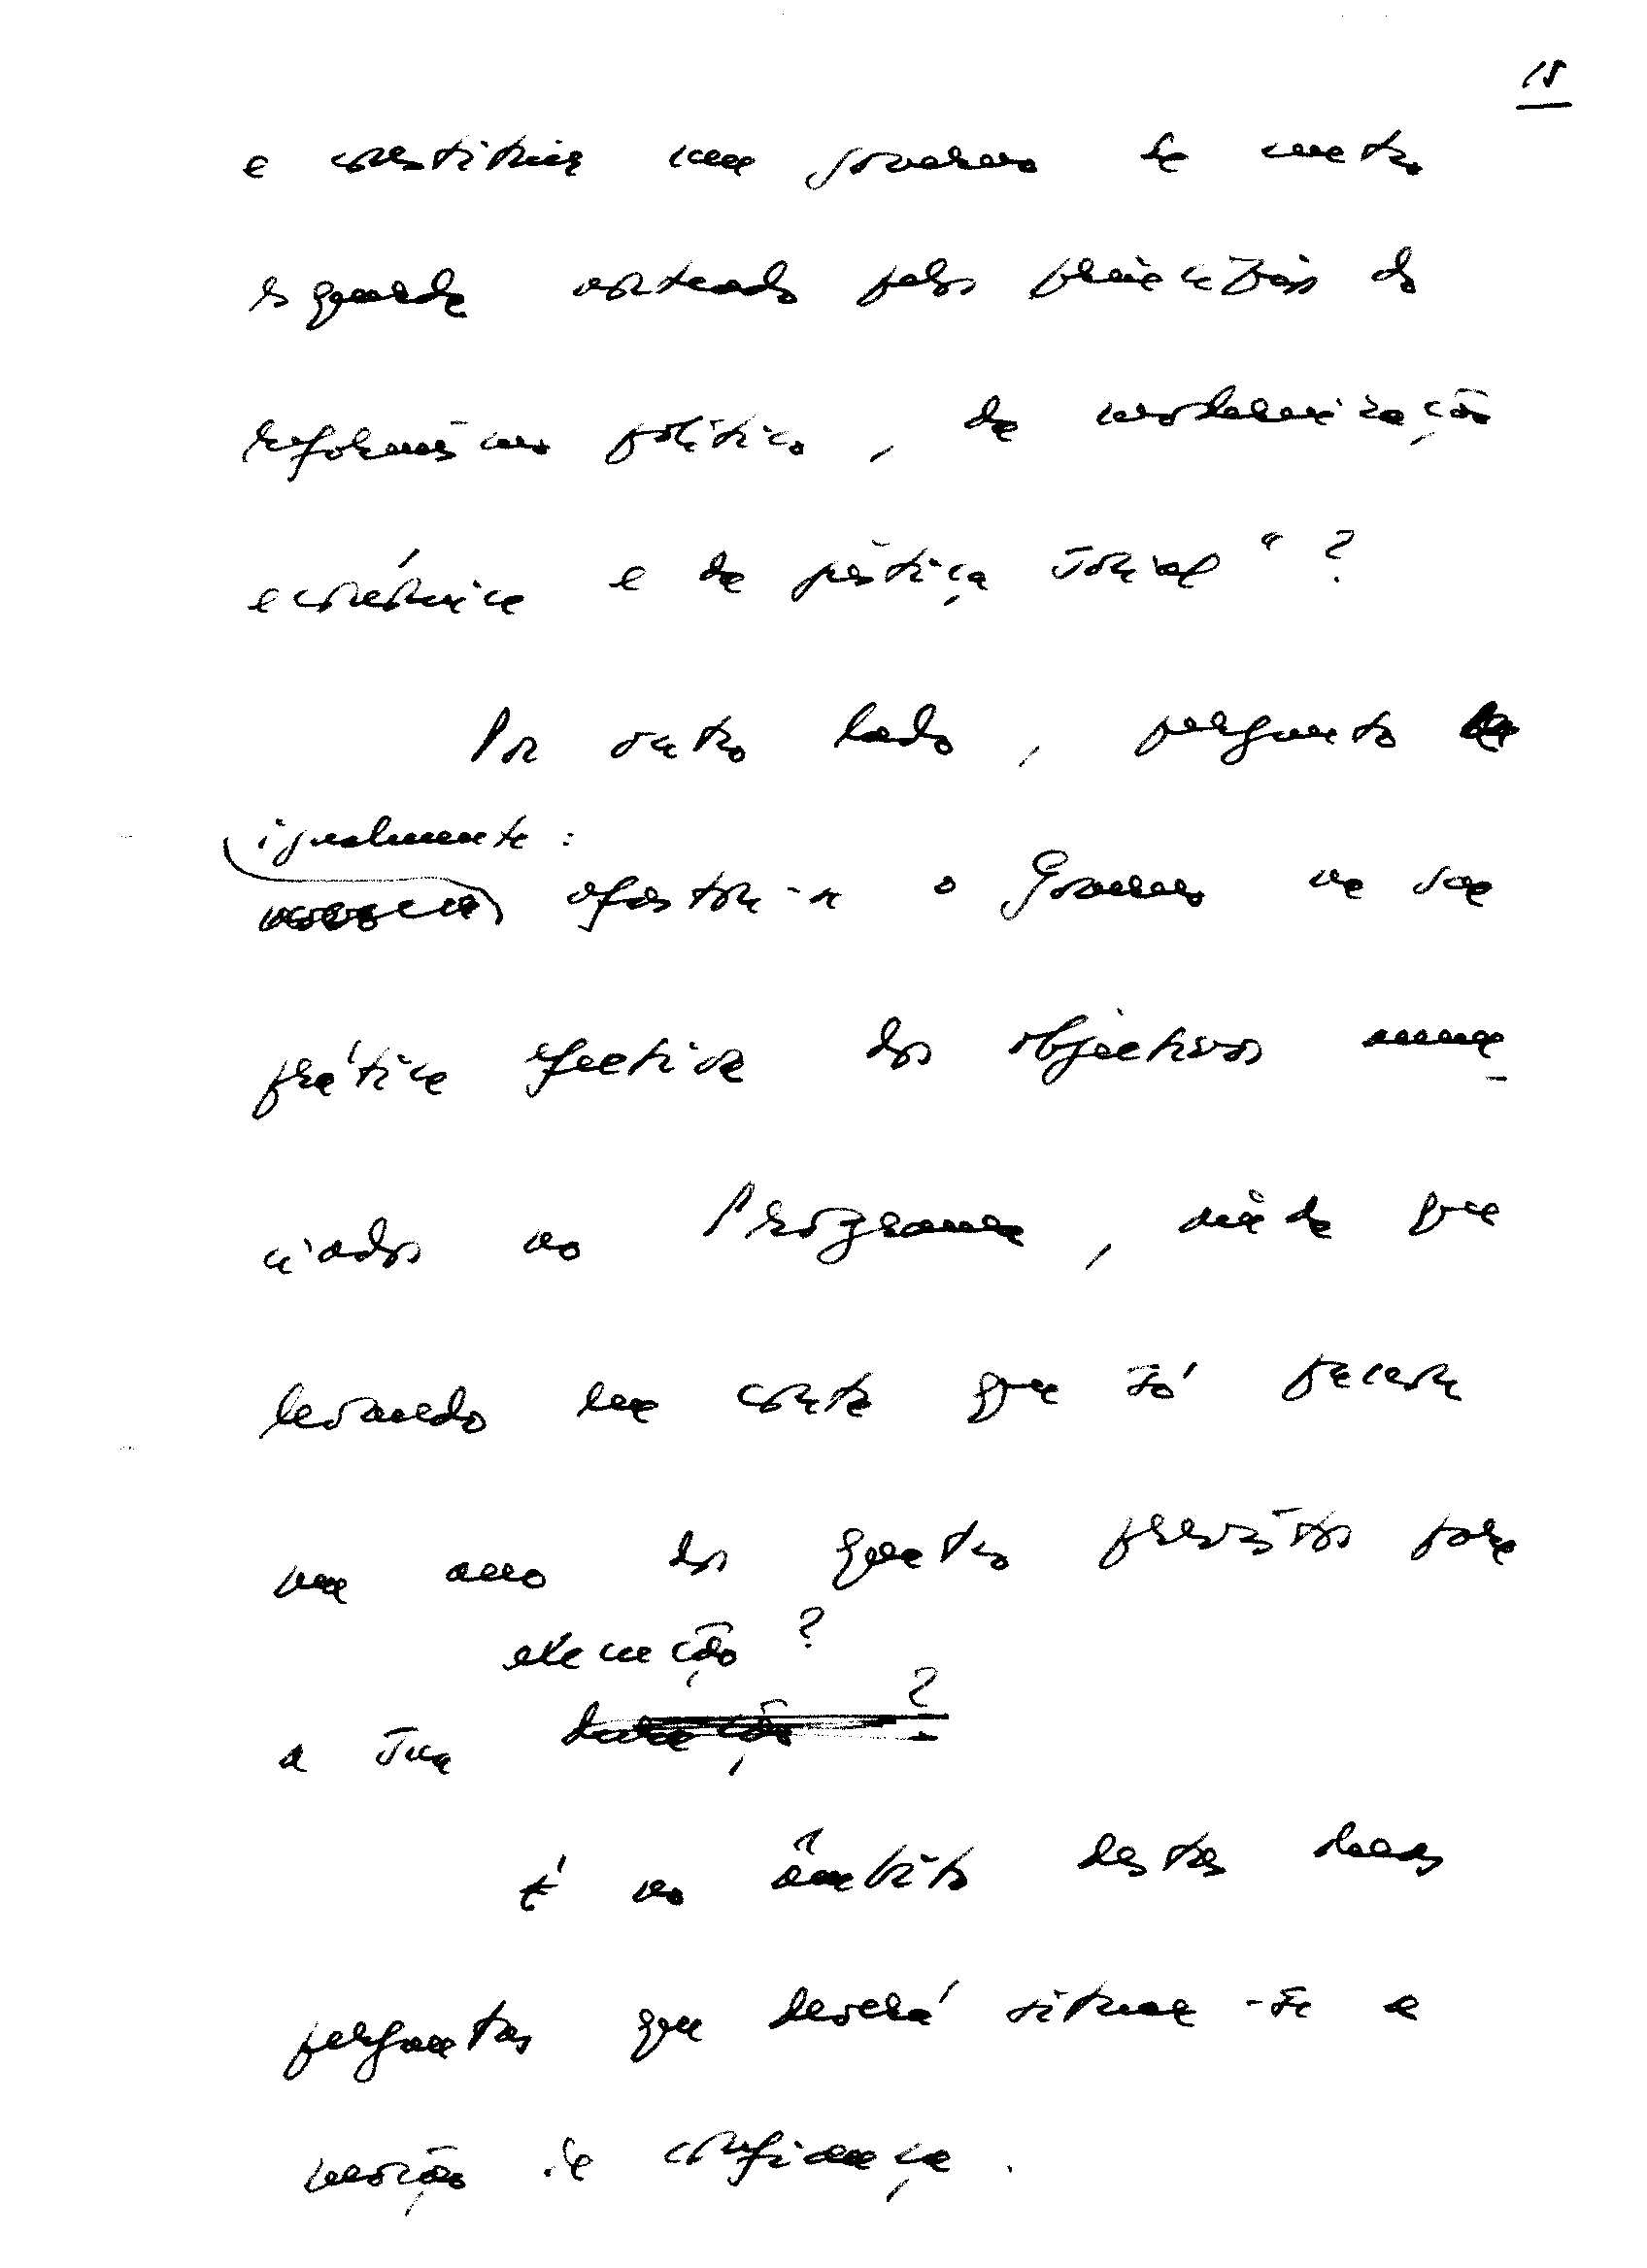 15
e constituir um governo de centro
esquerda norteado pelos princípios do
reformismo político, da modernização
económica e da justiça social" ?
Por outro lado, pergunto
igualmente :
afastou-se o Governo na sua
prática efectiva dos objectivos anun-
ciados no Programa, ainda que
levando em conta que só passou
um ano dos quatro previstos para
execução ?
a sua duração ?
É no âmbito destas duas
perguntas que deverá situar-se a
moção de confiança .